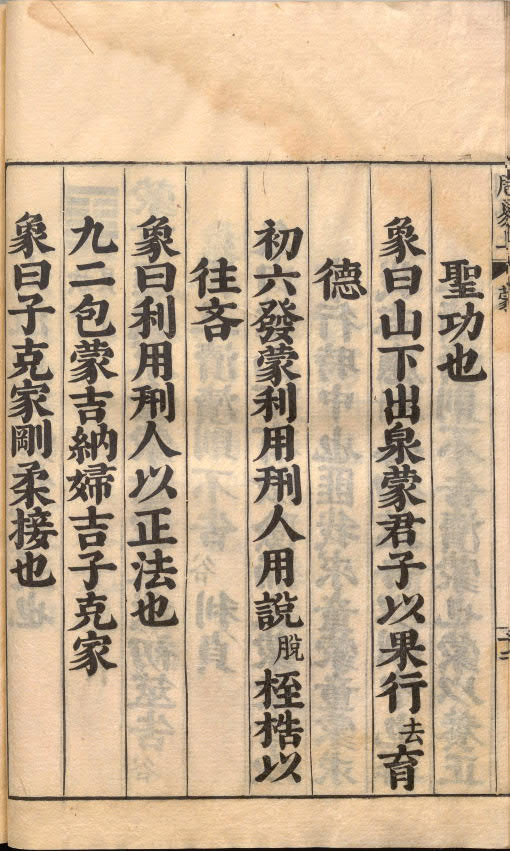 聖功也
象曰山下出泉蒙君子以果行去育
德
初六發蒙利用刑人用說脫桎梏以
往吝
象曰利用刑人以正法也
九二包蒙吉納婦吉子克家
象曰子克家剛柔接也